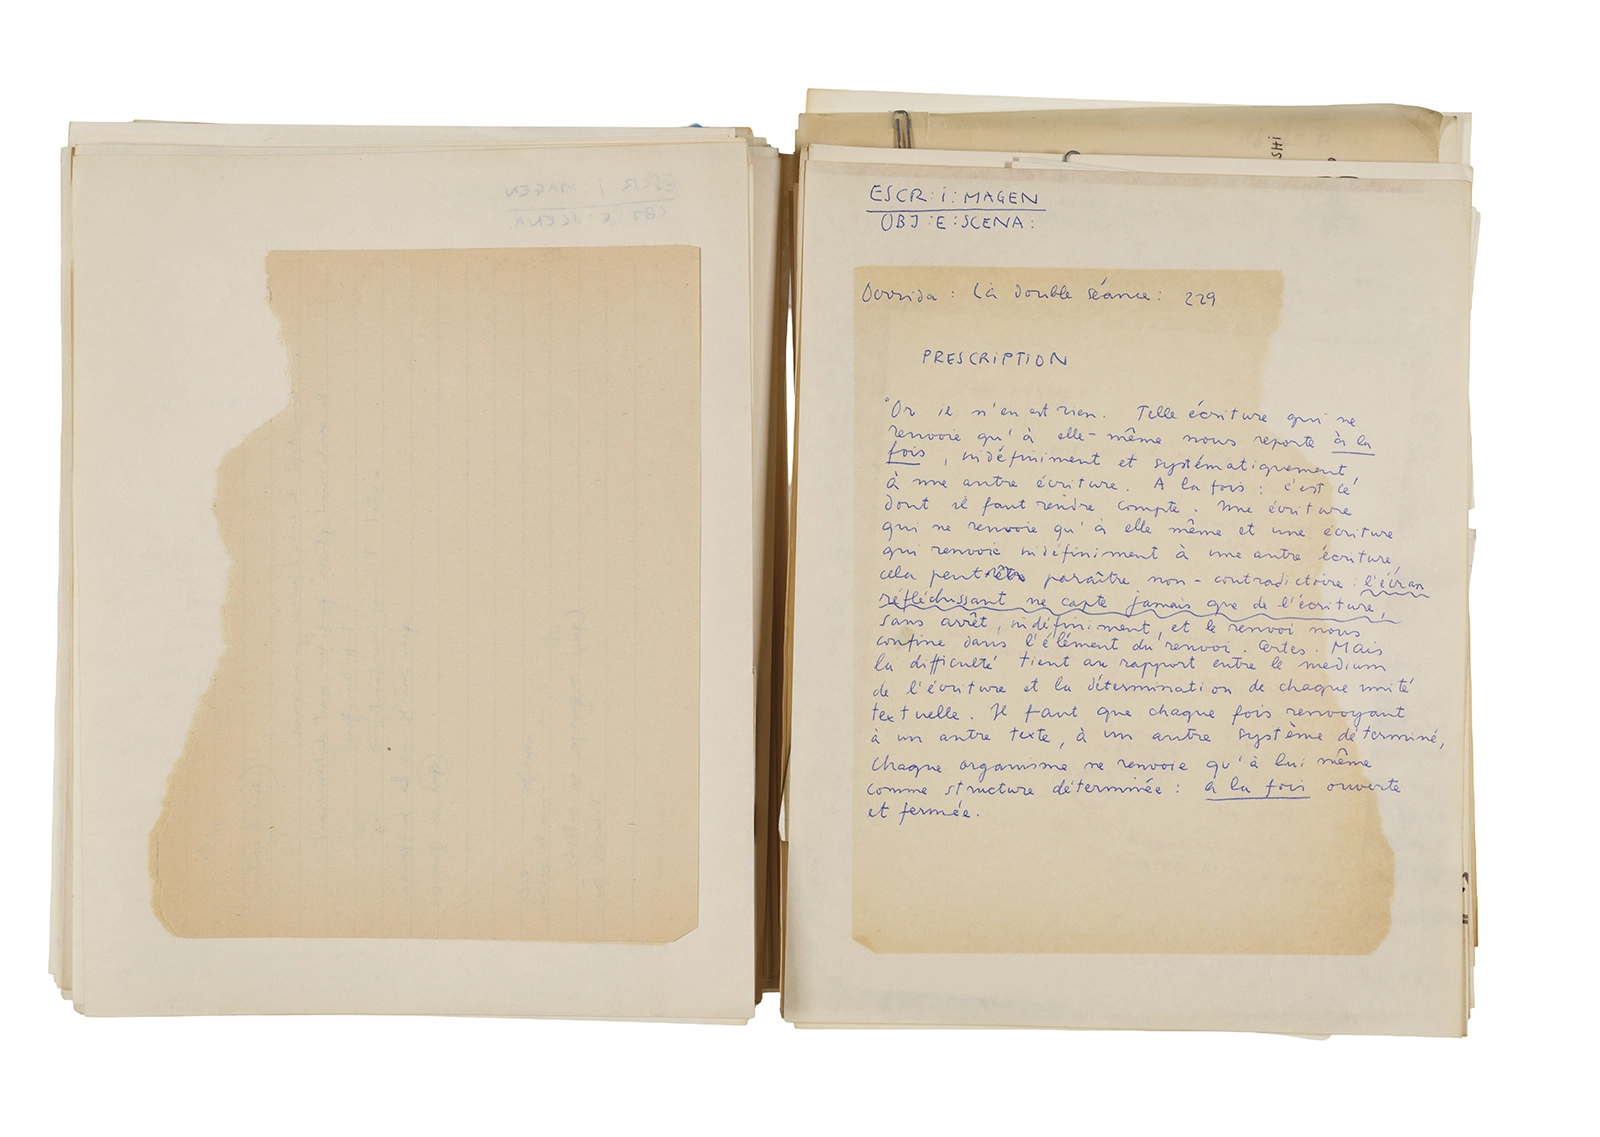 ESCR : i : MAGEN
OBJ : E : SCENA :
SHI
Derrida : La double séance : 229
PRESCRIPTION
"Or il n'en est rien. Telle écriture qui ne
renvoie qu'à elle-même nous reporte à la
fois, indéfiniment et systématiquement
à une autre écriture. A la fois : c'est ce
dont il faut rendre compte. Une écriture
qui ne renvoie qu'à elle même et une écriture
qui renvoie indéfiniment à une autre écriture,
cela peut paraître non-contradictoire : l'écran
réfléchissant ne capte jamais que de l'écriture,
sans arrêt, indéfiniment, et le renvoi nous
confine dans l'élément du renvoi. Certes. Mais
la difficulté tient au rapport entre le medium
de l'écriture et la détermination de chaque unité
textuelle. Il faut que chaque fois renvoyant
à un autre texte, à un autre système déterminé,
chaque organisme ne renvoie qu'à lui même
comme structure déterminée : à la fois ouverte
et fermée.